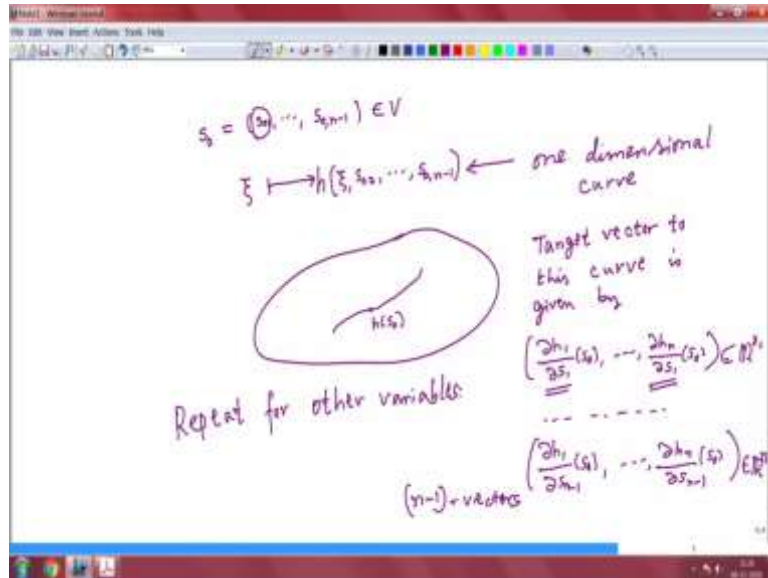 Note1 - Windows Journal
File Edit View Insert Actions Tools Help
s₀ = (s₀₁, ⋯, s₀,ₙ₋₁) ∈ V
ξ ⟼ h(ξ, s₀₂, ⋯, s₀,ₙ₋₁) ⟵ one dimensional
curve
h(s₀)
Tanget vector to
this curve is
given by
(∂h₁/∂s₁ (s₀), ⋯, ∂hₙ/∂s₁ (s₀)) ∈ ℝⁿ,
Repeat for other variables.
(∂h₁/∂sₙ₋₁ (s₀), ⋯, ∂hₙ/∂sₙ₋₁ (s₀)) ∈ ℝⁿ
(n-1)-vectors